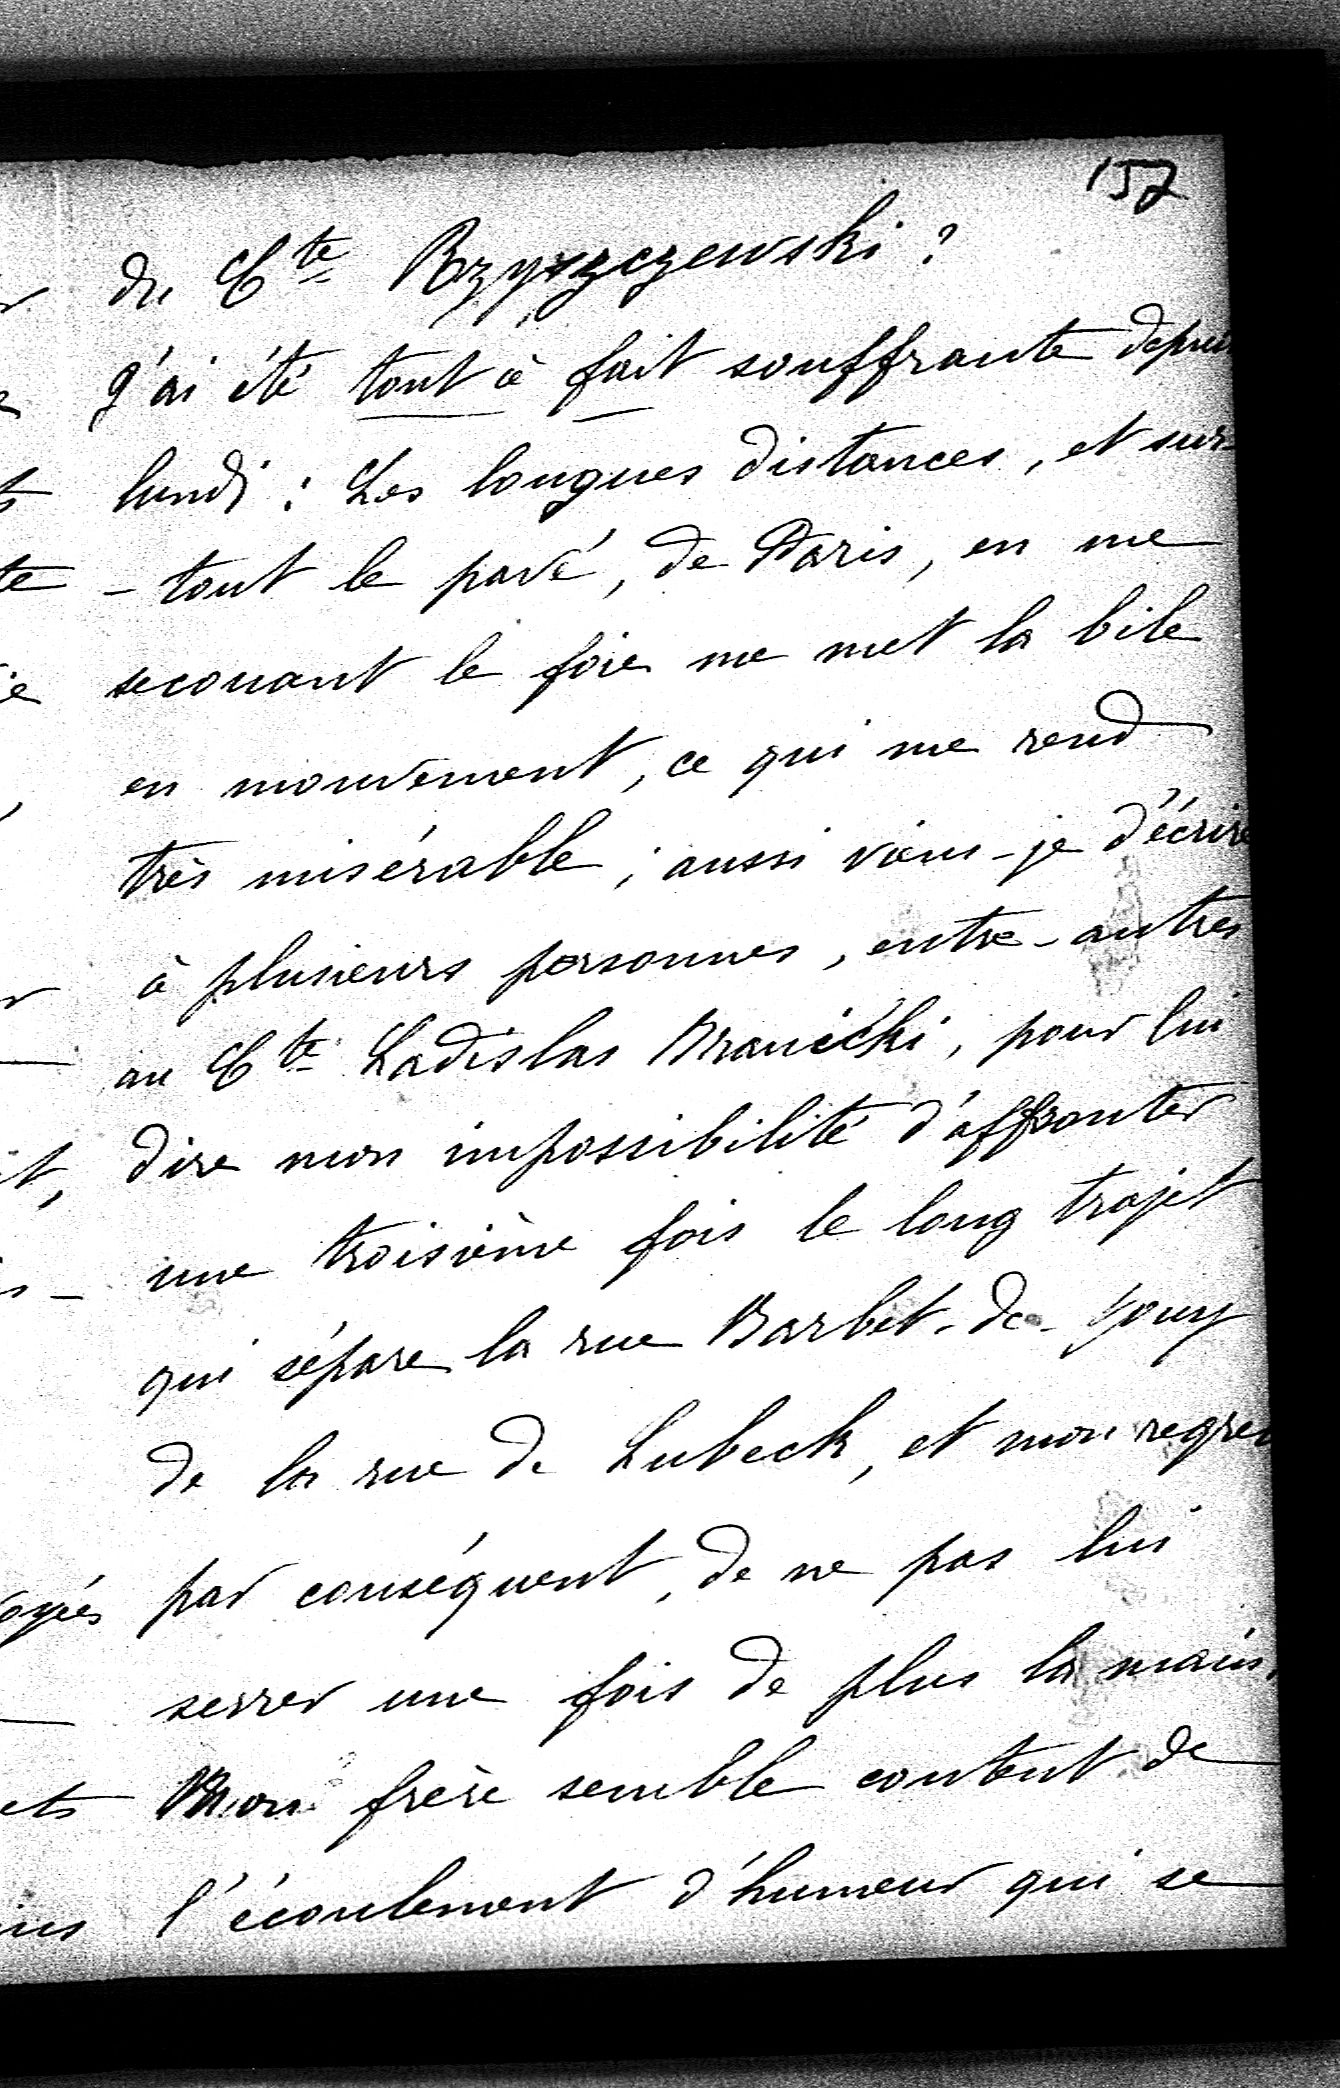 157
du Cte Rzyszczewski ?
J'ai été tout à fait souffrante depuis
lundi : Les longues distances, et sur-
- tout le pavé, de Paris, en me
secouant le foie me met la bile
en mouvement, ce qui me rend
très misérable ; aussi viens-je d'écrire
à plusieurs personnes, entre-autres
au Cte Ladislas Branicki, pour lui
dire mon impossibilité d'affronter
une troisième fois le long trajet
qui sépare la rue Barbet-de-Jouy
de la rue de Lubeck, et mon regret
par conséquent, de ne pas lui
serrer une fois de plus la main.
Mon frère semble content de
l'écoulement d'humeur qui se